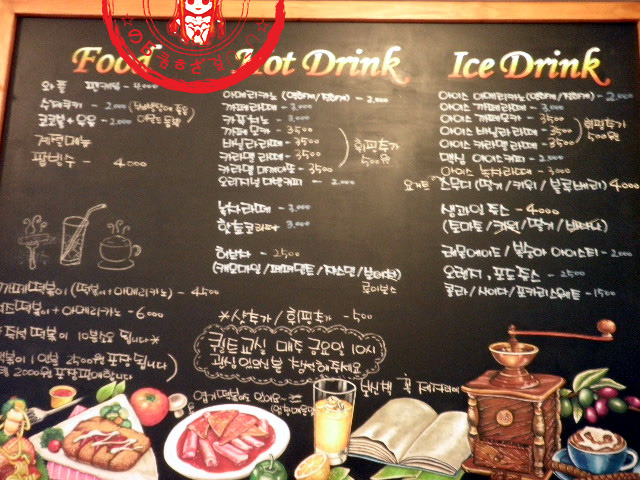 Food
와플 4000
수제쿠키 - 2000
코코볼 + 우유 - 2000
계절메뉴
팥빙수 - 4000
카페떡볶이 (떡볶이 + 아메리카노) - 4500
치즈떡볶이 + 아메리카노 - 6000
즉석 떡볶이 10분소요 됩니다
떡볶이 1인분 2500원 포장 됩니다
2000원
Hot Drink
아메리카노 (연하게/진하게) - 2,000
카페라떼 - 3,000
카푸치노 - 3,000
카페모카 - 3500
바닐라라떼 - 3500
카라멜라떼 - 3500
카라멜마끼아또 - 3500
휘핑추가 500원
오리지널 - 2000
녹차라떼 - 3,000
핫초코라떼 - 3,000
허브차 - 2500
(캐모마일/페퍼민트/자스민/
루이보스
*샷추가 / 휘핑추가 - 500
퀼트교실 매주 금요일 10시
관심있으신분 신청해주세요
Ice Drink
아이스 아메리카노 (연하게/진하게) - 2000
아이스 카페라떼 - 3000
아이스 카페모카 - 3500
아이스 바닐라라떼 - 3500
아이스 카라멜라떼 - 3500
휘핑추가 500원
아이스커피 - 2000
아이스 녹차라떼 - 3000
요거트 스무디 (딸기/키위/블루베리) 4000
생과일주스 - 4000
(토마토/키위/딸기/바나나)
레몬에이드/복숭아 아이스티 - 2000
오렌지, 포도주스 - 2500
콜라/사이다/포카리스웨트 - 1500